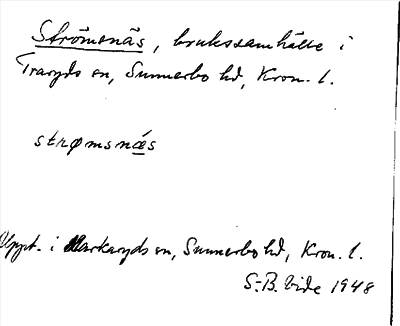 Strömsnäs, brukssamhälle i
Traryds sn, Sunnerbo hd, Kron. l.
strømsnæ̲s
Uppt. i Markaryds sn, Sunnerbo hd, Kron. l.
S.-B. Vide 1948